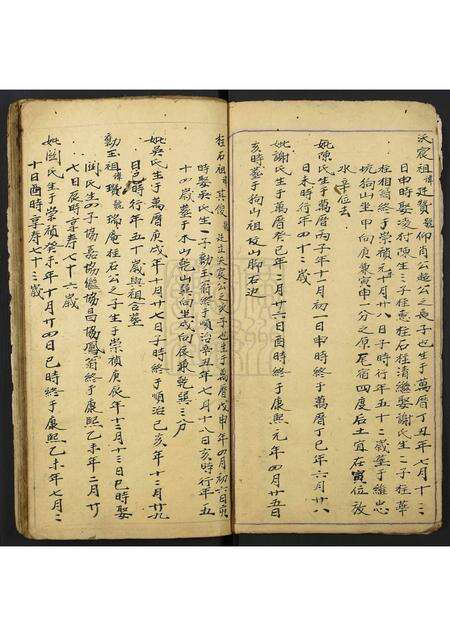 沃宸祖諱廷贊號仰肖公超公之長子也生于萬曆丁丑年七月十二
日申時娶凌村陳生三子柱惠柱石柱清繼娶謝氏生二子柱華
柱相翁終于崇禎元十月十八日子時行年五十二歲葬于維忠
坑狗山坐甲向庚兼寅申一分之原尾宿四度后土宜在寅位放
水辛位去
妣陳氏生于萬曆丙子年十一月初一日申時終于萬曆丁巳年六月廿八
日未時行年四十二歲
妣謝氏生于萬曆癸巳年八月廿六日酉時終于康熙元年四月廿五日
亥時葬于狗山祖坟山脚右边
柱石祖諱其俊號廷立沃宸公之次子也生于萬曆戊申年四月初六日卯
時娶吳氏生一子勳玉翁終于順治辛丑年七月十八日亥時行年五
十四歲葬于木山乾山巽向坐戌向辰兼乾巽三分
妣吳氏生于萬曆庚戌年十月廿七日子時終于順治己亥年十二月廿九
日巳時行年五十歲與祖合葬
勳玉祖諱瓚號瑞庵柱石公之子生于崇禎庚辰年十二月十三日巳時娶
闕氏生四子協嘉協繼協昌協鳳翁終于康熙乙未年二月廿
七日辰時享寿七十六歲
妣闕氏生于崇禎癸未年十月廿四日巳時終于康熙乙未年七月二
十日酉時享寿七十三歲